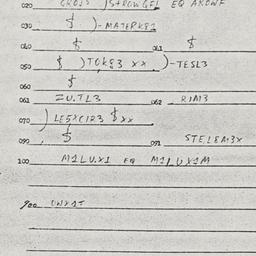 020 GROJS )STROWGFL EQ AKOWF
030 $ )-MATERKE1
040 $ 041 $
050 $ )TOKE3 XX )-TESL3
060 $
061 ZU.TL3 062 RIM3
070 )LE5XCIR3 $XX
090 $ 091 STELEM3X
100 M1LU.X1 EQ M1LUX1M
900 OWX1T